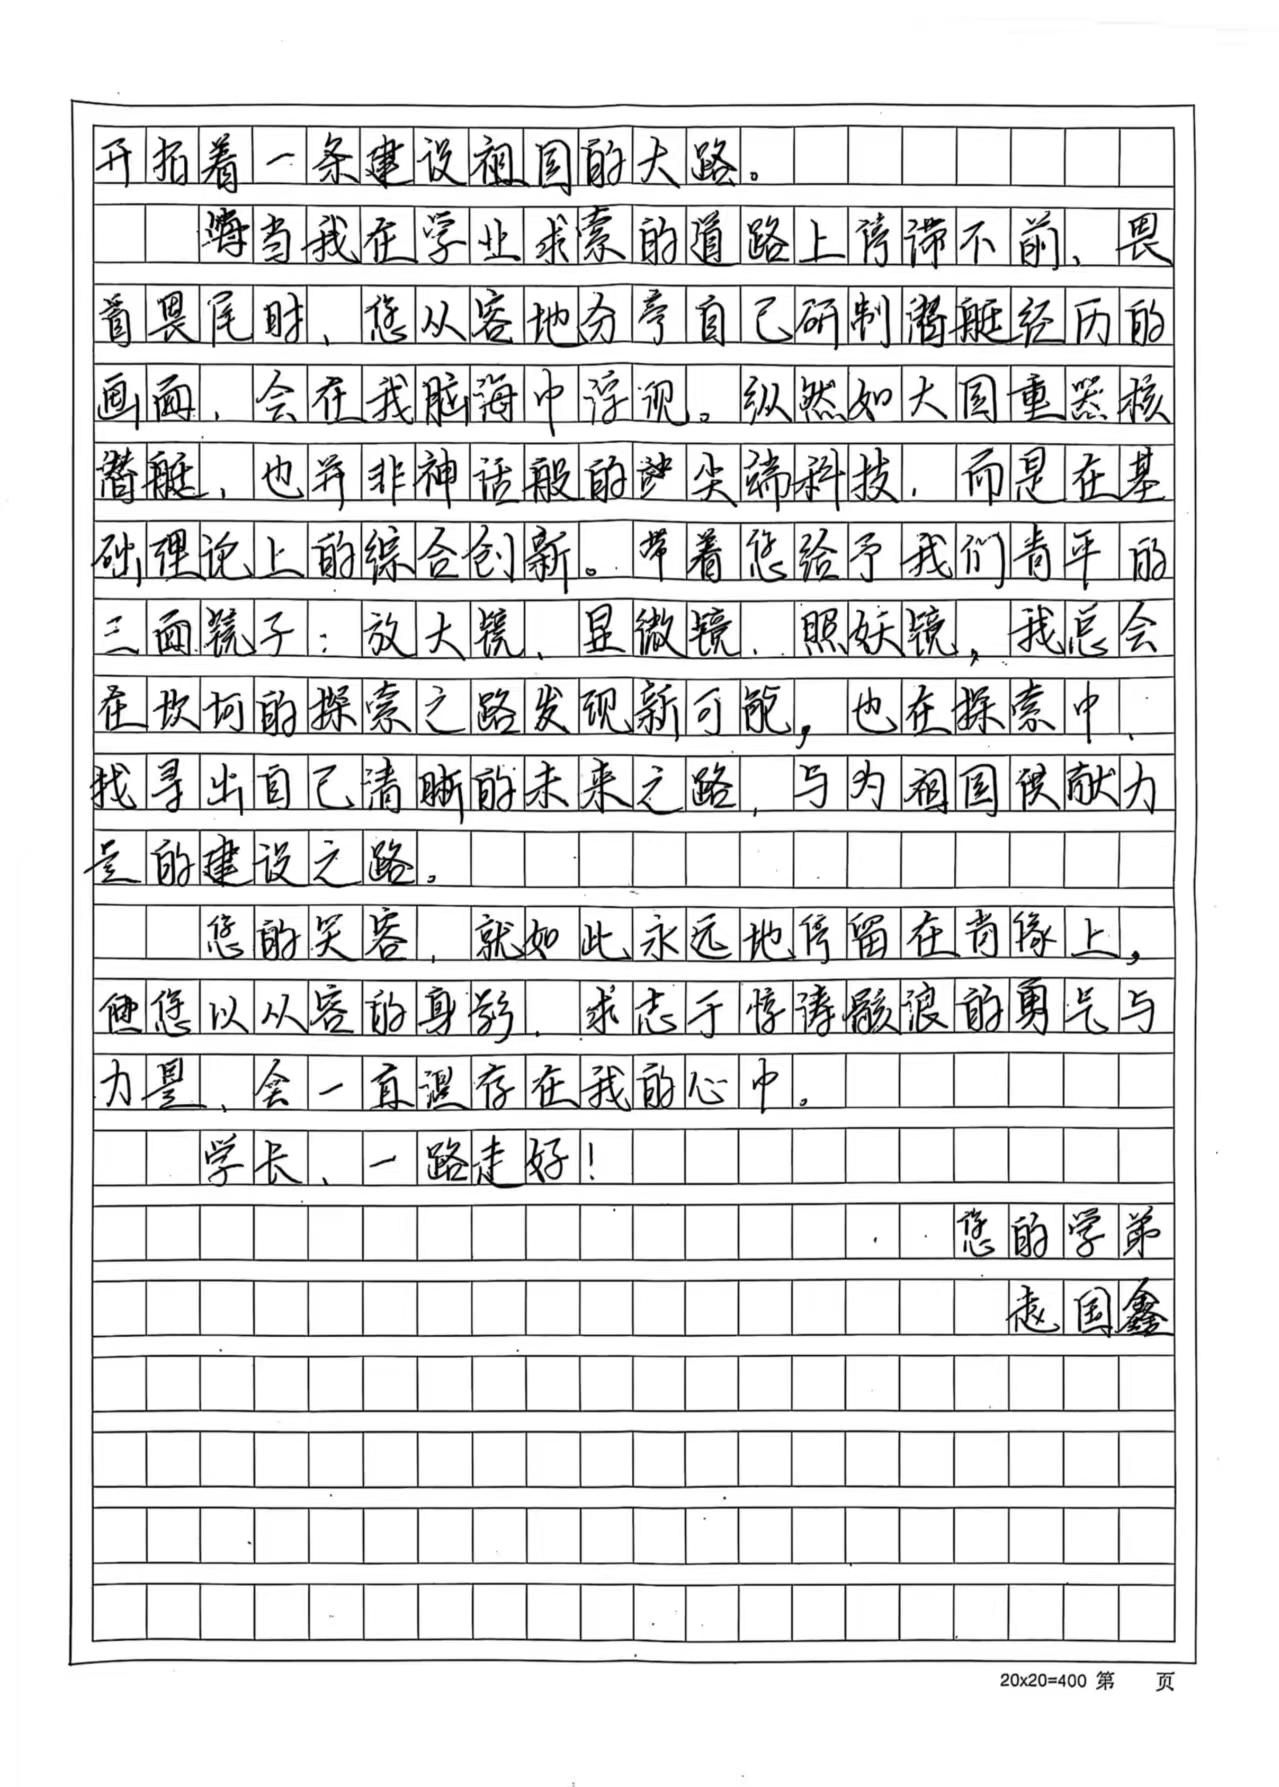 开拓着一条建设祖国的大路。
每当我在学业求索的道路上停滞不前、畏
首畏尾时，您从容地分享自己研制潜艇经历的
画面，会在我脑海中浮现。纵然如大国重器核
潜艇，也并非神话般的尖端科技，而是在基
础理论上的综合创新。带着您给予我们青年的
三面镜子：放大镜、显微镜、照妖镜，我总会
在坎坷的探索之路发现新可能，也在探索中，
找寻出自己清晰的未来之路，与为祖国供献力
量的建设之路。
您的笑容，就如此永远地停留在肖像上，
但您以从容的身影，求志于惊涛骇浪的勇气与
力量，会一直湿存在我的心中。
学长，一路走好！
您的学弟
赵国鑫
20x20=400 第 页